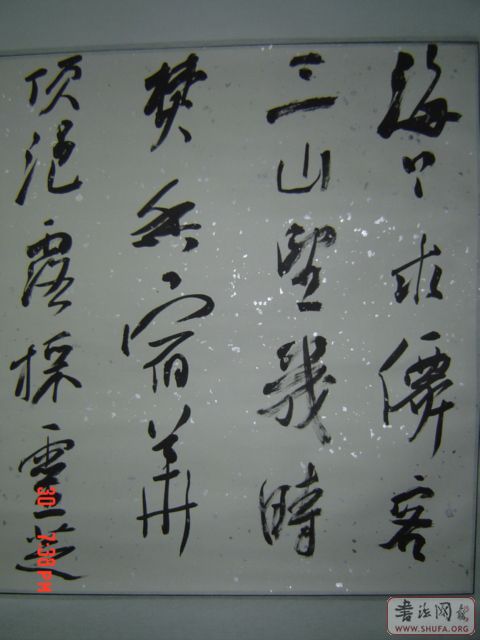 海上求僊客
三山望幾時
焚香宿華
頂浥露採靈芝
30 7:38 PM
書法网
WWW.SHUFA.ORG